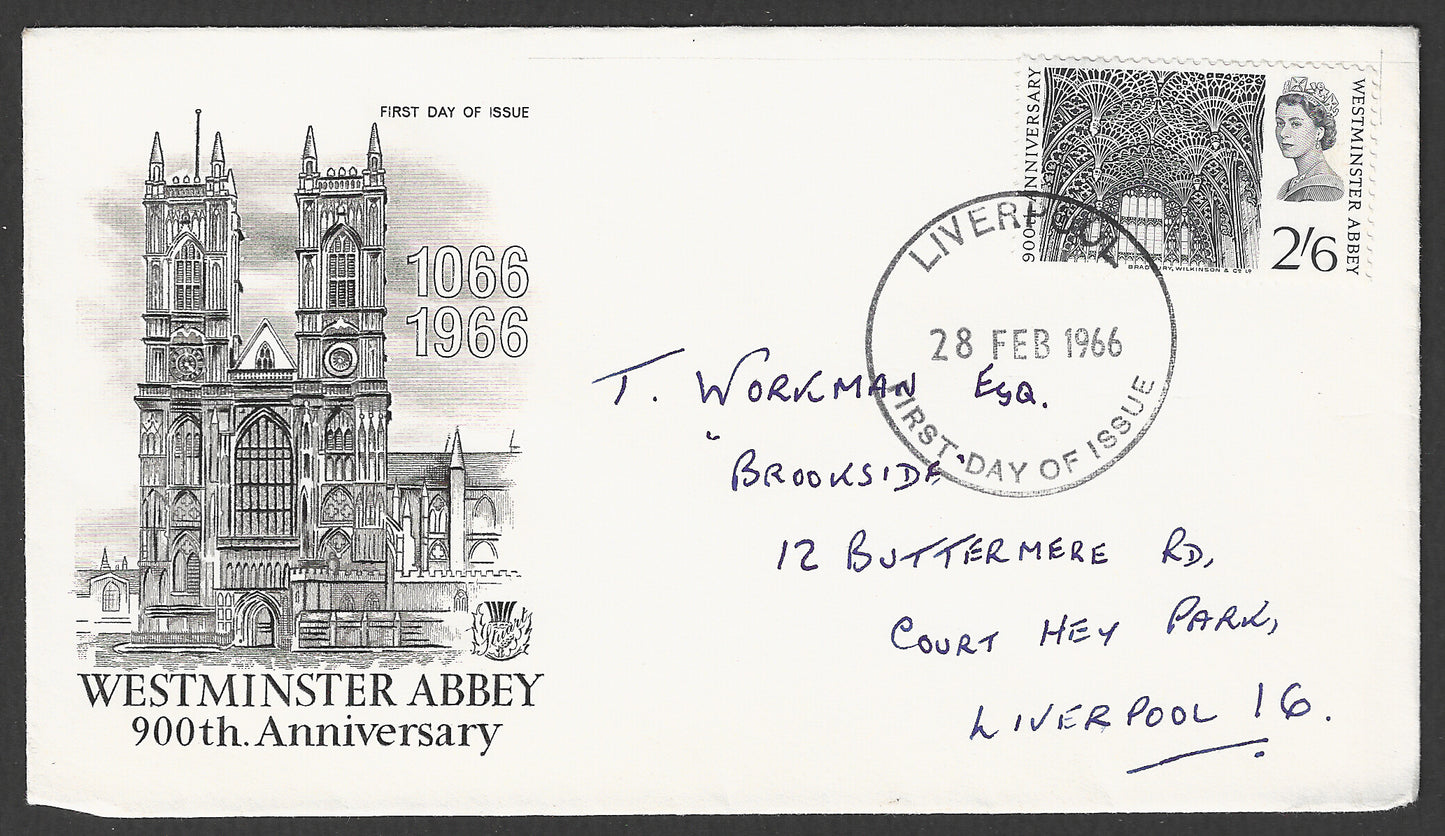 FIRST DAY OF ISSUE
1066
1966
WESTMINSTER ABBEY
900th. Anniversary
900th ANNIVERSARY
WESTMINSTER ABBEY
2/6
BRADBURY, WILKINSON & Co. Ld
LIVERPOOL
28 FEB 1966
FIRST · DAY OF ISSUE
T. WORKMAN ESQ.
"BROOKSIDE"
12 BUTTERMERE RD,
COURT HEY PARK,
LIVERPOOL 16.